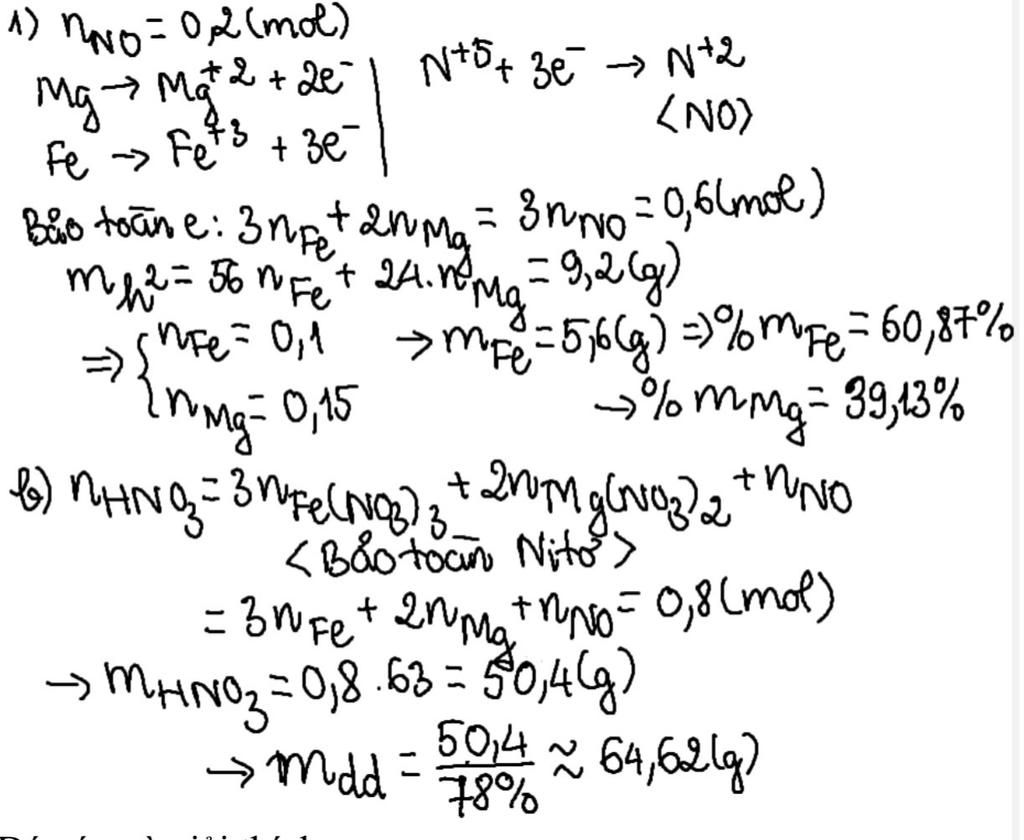 1) nNO = 0,2 (mol)
Mg → Mg+2 + 2e- | N+5 + 3e- → N+2
<NO>
Fe → Fe+3 + 3e-
Bảo toàn e: 3nFe + 2nMg = 3nNO = 0,6 (mol)
mh2 = 56 nFe + 24.nMg = 9,2 (g)
⇒ { nFe = 0,1 → mFe = 5,6 (g) ⇒ %mFe = 60,87%
nMg = 0,15 → %mMg = 39,13%
b) nHNO3 = 3nFe(NO3)3 + 2nMg(NO3)2 + nNO
<Bảo toàn Nitơ>
= 3nFe + 2nMg + nNO = 0,8 (mol)
→ mHNO3 = 0,8 . 63 = 50,4 (g)
→ mdd = 50,4 / 78% ≈ 64,62 (g)